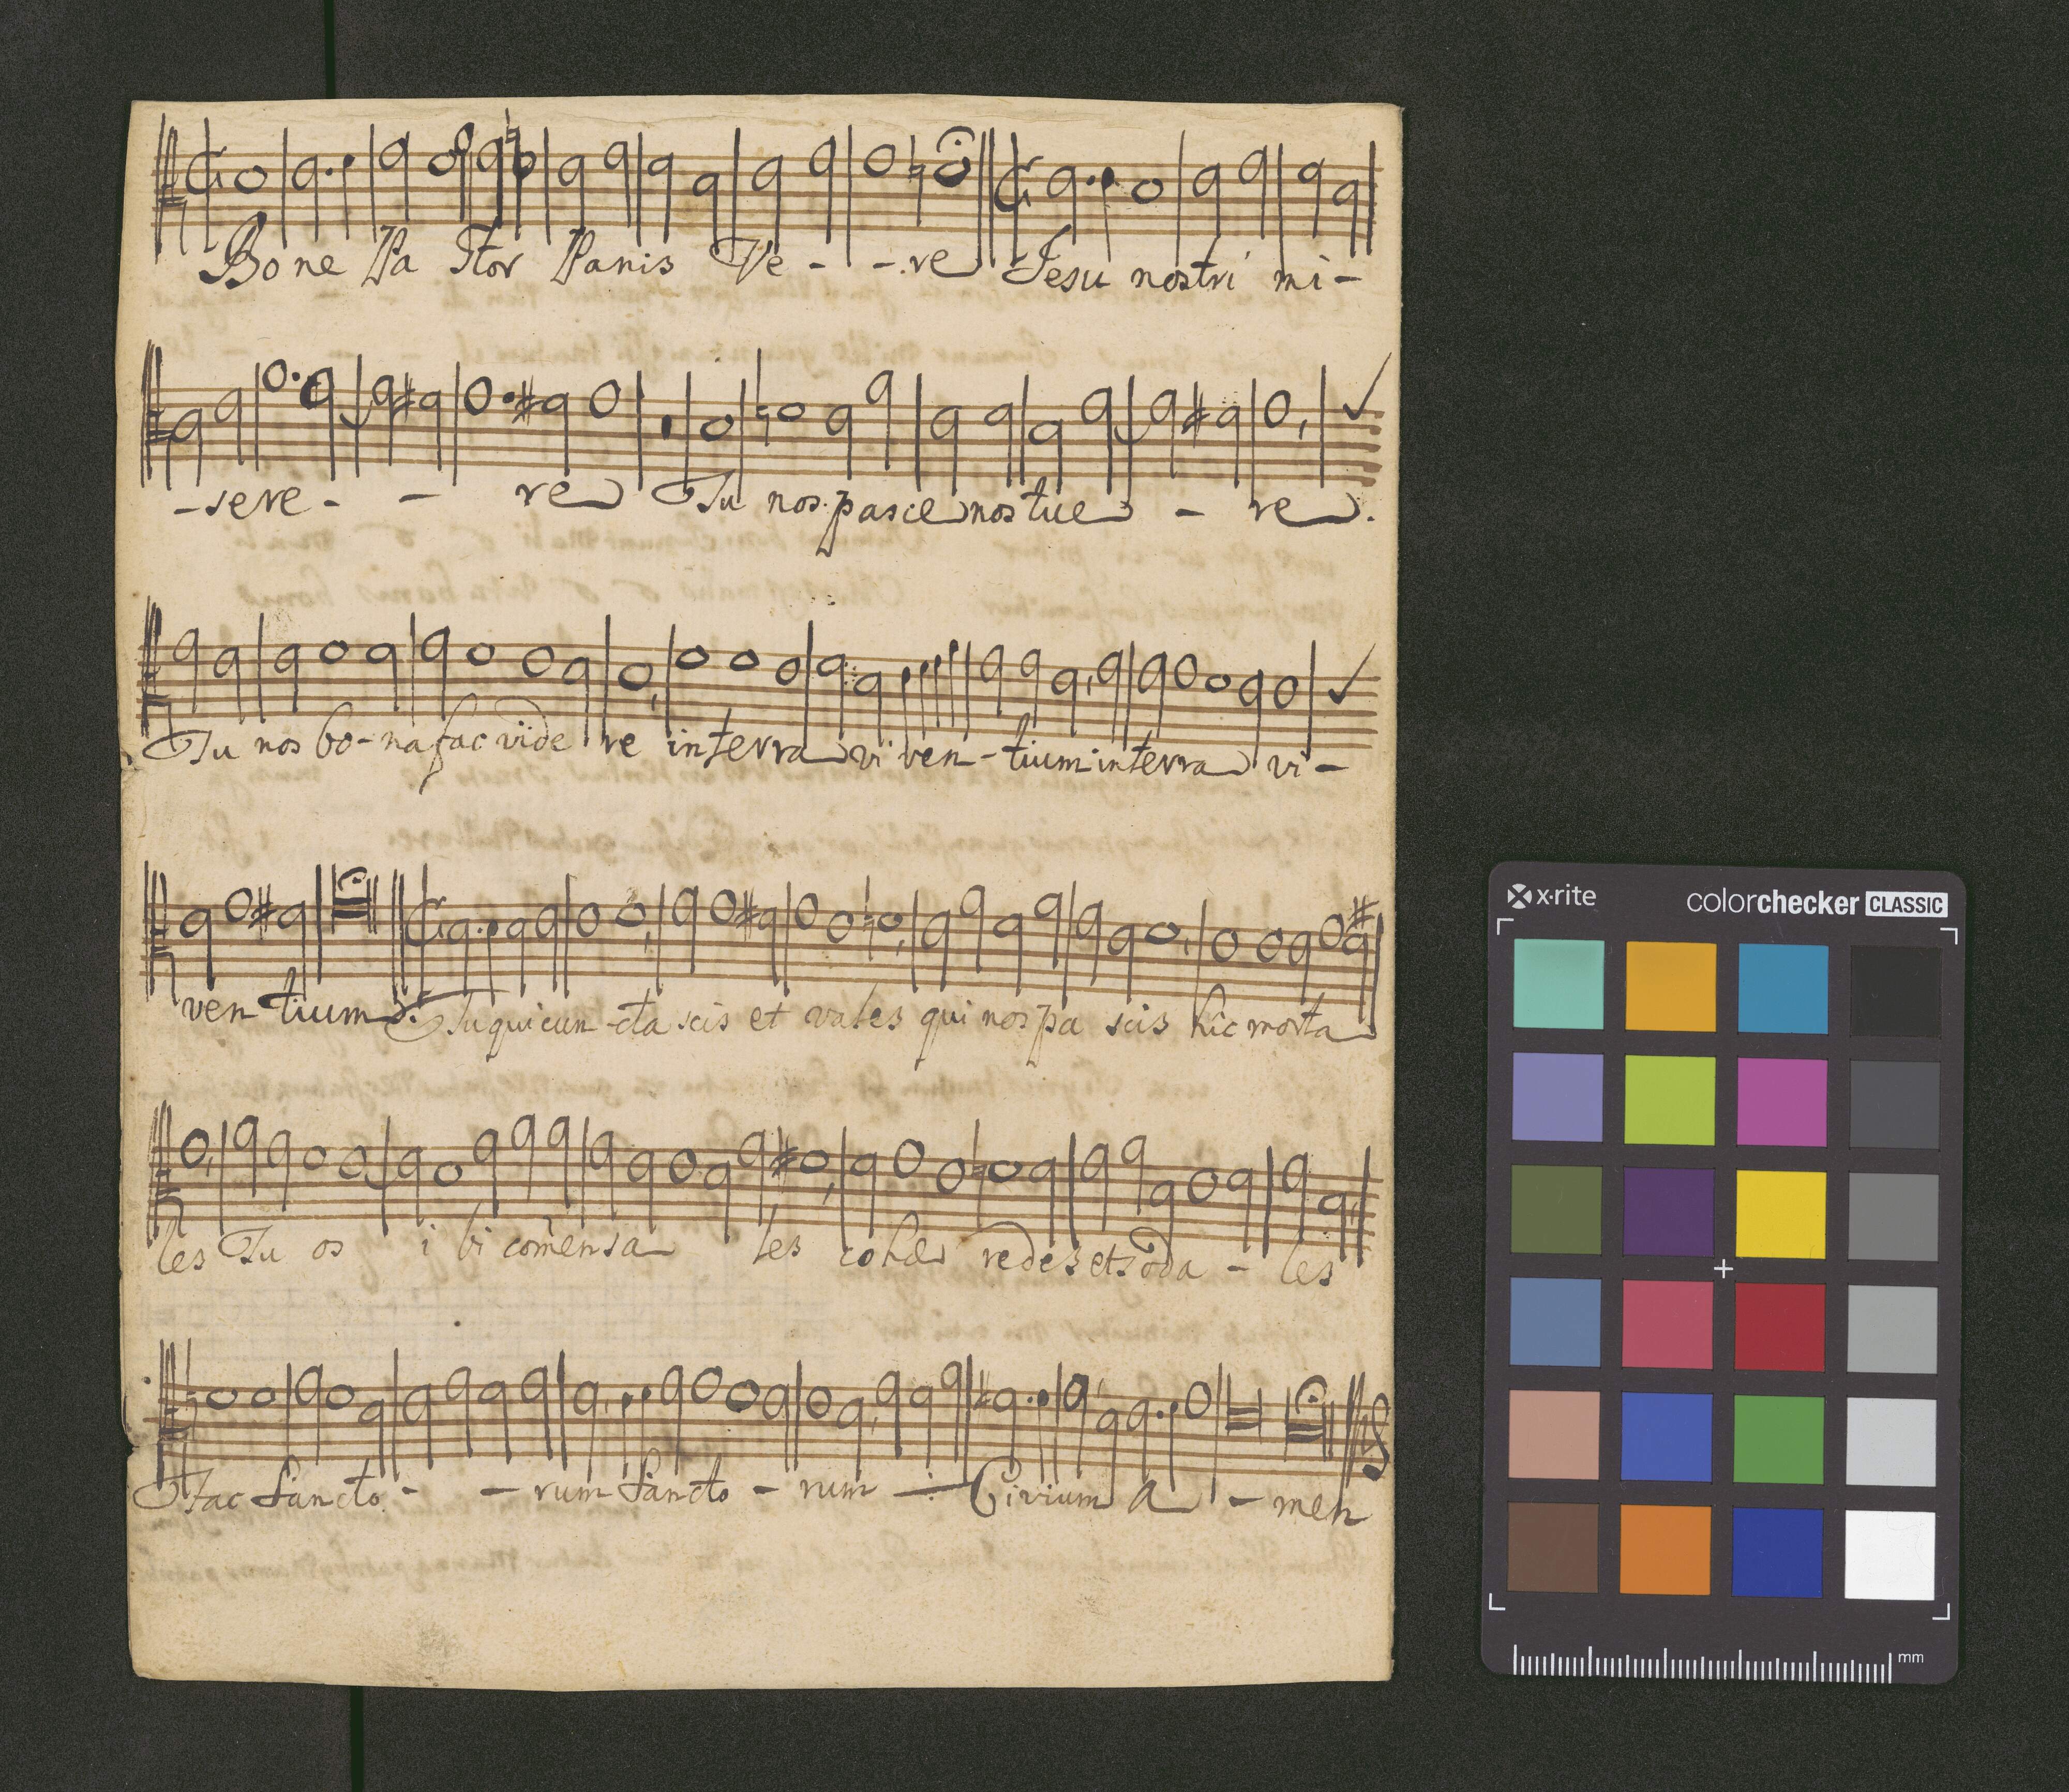 Bo ne Pa stor Panis Ve - - re Jesu nostri mi -
- se re - - re Tu nos pasce nos tue - re.
Tu nos bo - na fac vide re in terra vi ven - tium in terra vi -
ven tium. Tu qui cun - cta scis et vales qui nos pa scis hîc morta
les Tu os i bi com̃ensa les cohæ redes et soda - les
Fac Sancto - - rum Sancto - rum Civium A - men
x·rite
colorchecker CLASSIC
mm